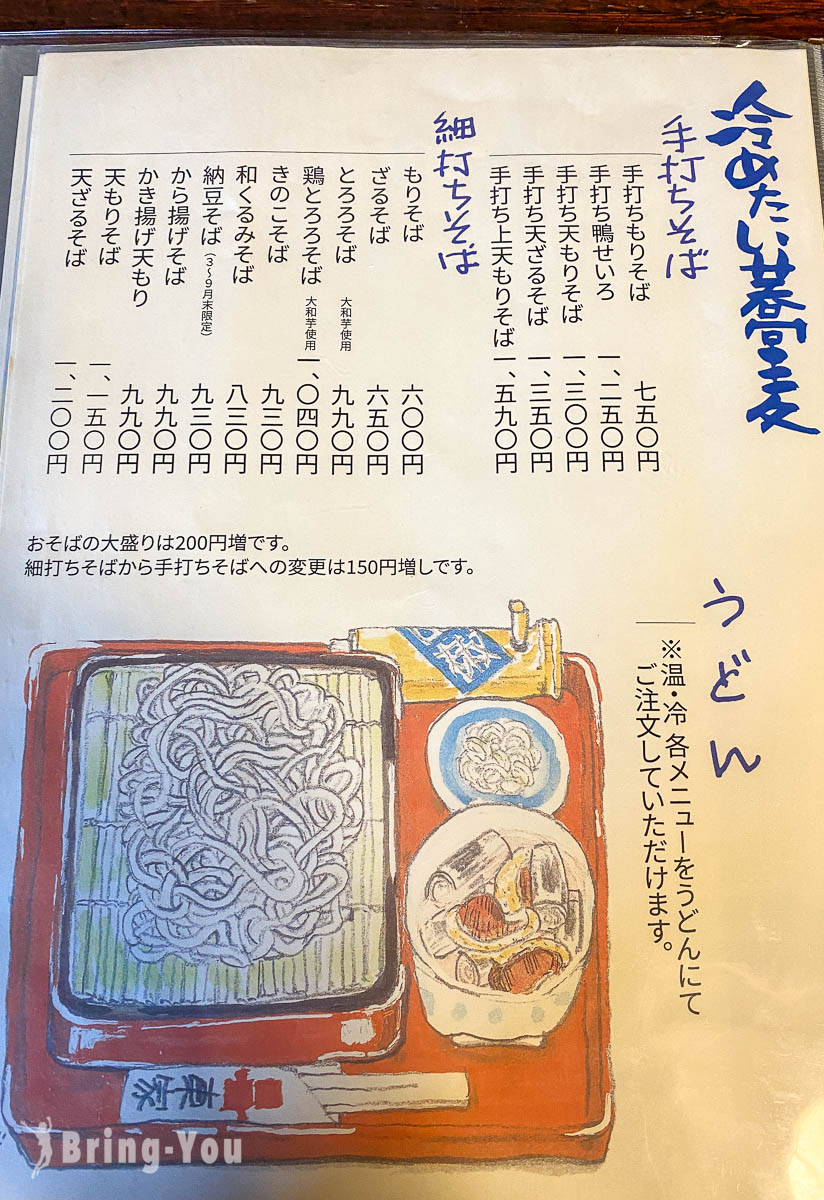 冷めたい蕎麦
手打ちそば
手打ちもりそば 七五〇円
手打ち鴨せいろ 一、二五〇円
手打ち天もりそば 一、三〇〇円
手打ち天ざるそば 一、三五〇円
手打ち上天もりそば 一、五九〇円
細打ちそば
もりそば 六〇〇円
ざるそば 六五〇円
とろろそば 大和芋使用 九九〇円
鶏とろろそば 大和芋使用 一、〇四〇円
きのこそば 九三〇円
和くるみそば 八三〇円
納豆そば(3〜9月末限定) 九三〇円
から揚げそば 九九〇円
かき揚げ天もり 九九〇円
天もりそば 一、一五〇円
天ざるそば 一、二〇〇円
おそばの大盛りは200円増です。
細打ちそばから手打ちそばへの変更は150円増しです。
うどん
※温・冷 各メニューをうどんにて
ご注文していただけます。
Bring-You